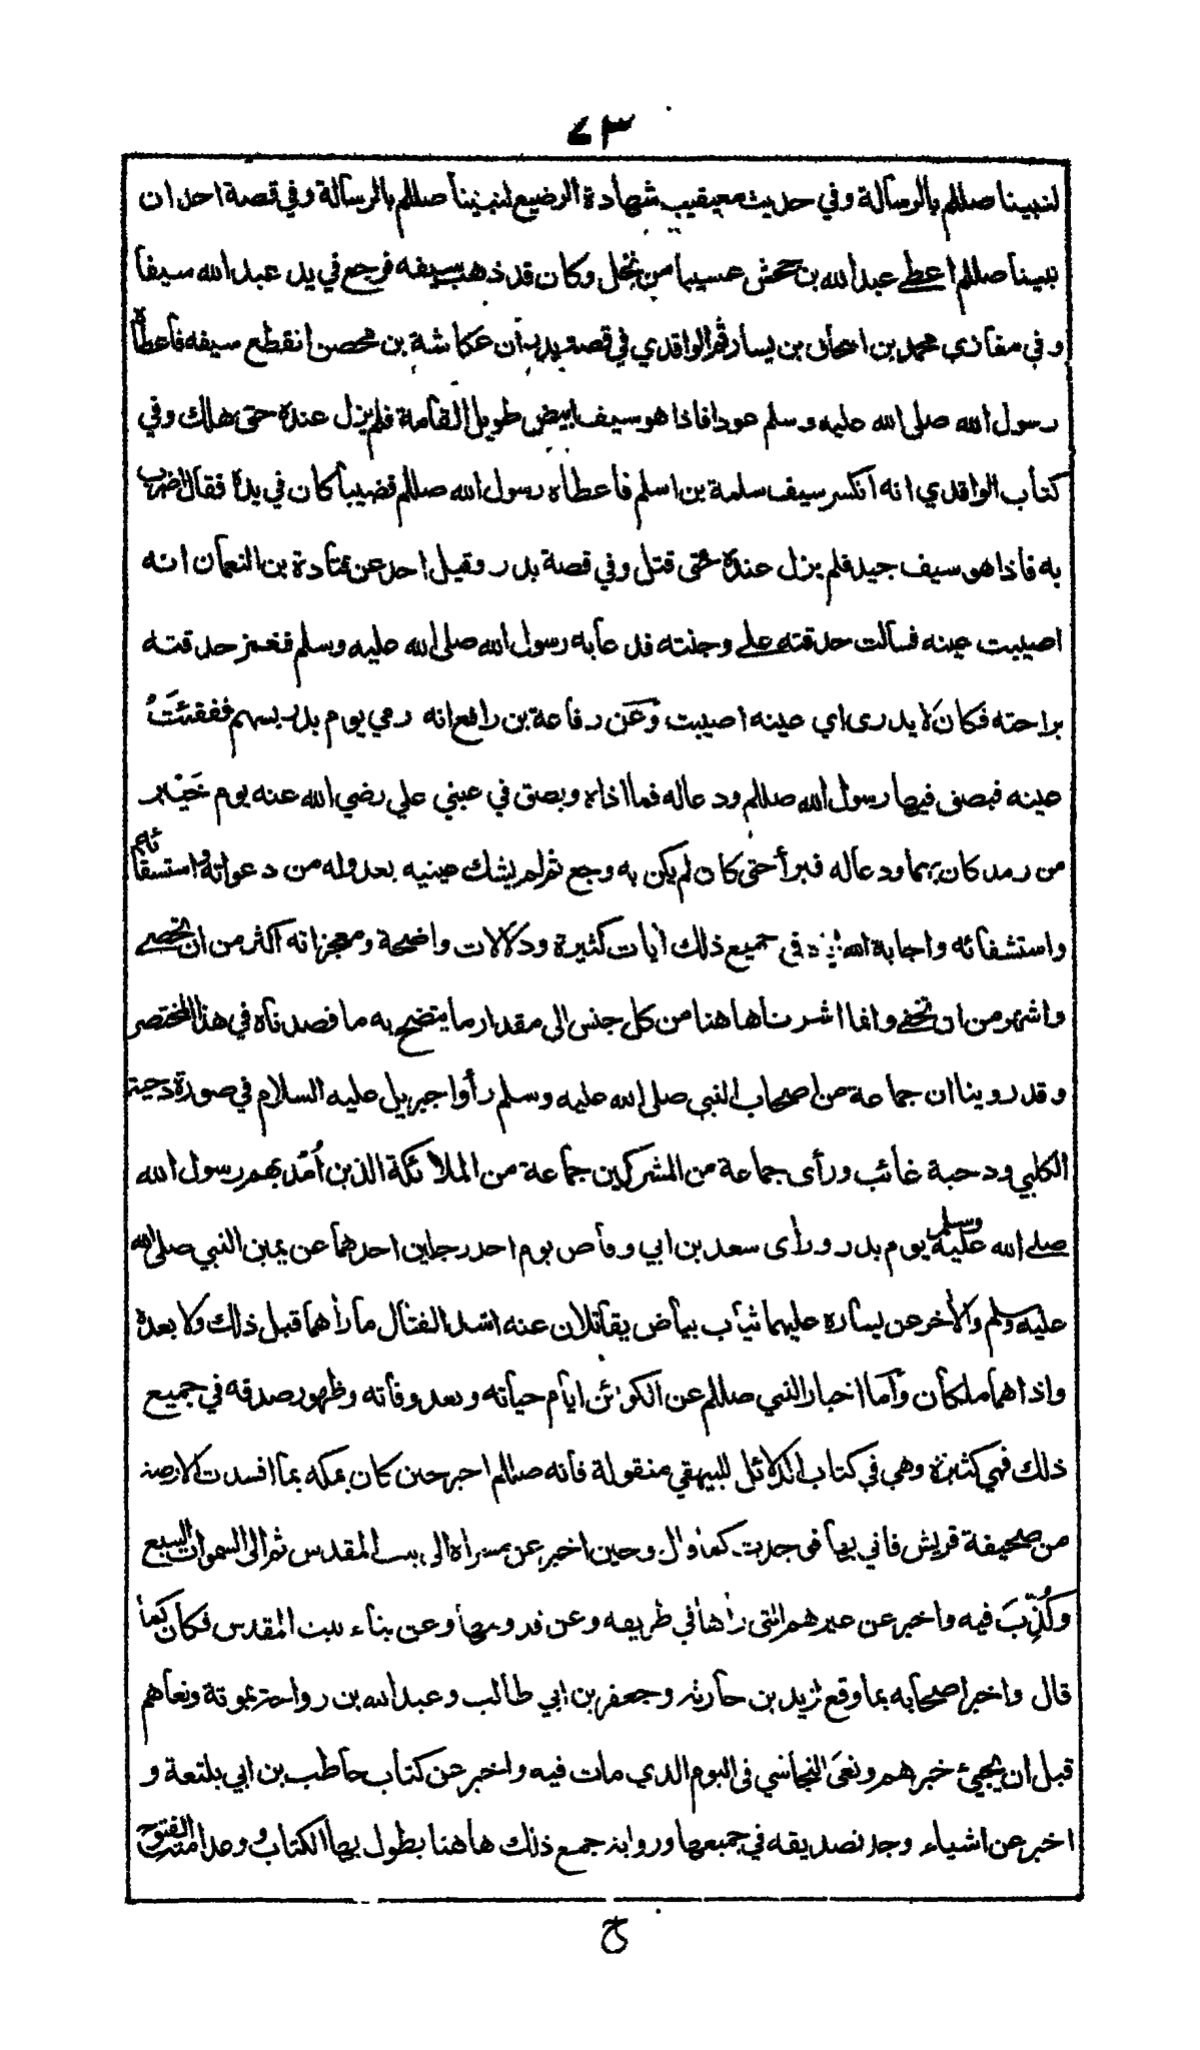 ٧٣
لنبينا صللم بالرسالة وفي حديث معيقيب شهادة الرضيع لنبينا صللم بالرسالة وفي قصة احد ان
نبينا صللم اعطى عبد الله بن جحش عسيبا من نخل وكان قد ذهب سيفه فرجع في يد عبد الله سيفا
وفي مغازي محمد بن اسحاق بن يسار ثم الواقدي في قصة بدر أن عكاشة بن محصن انقطع سيفه فأعطاه
رسول الله صلى الله عليه وسلم عودا فاذا هو سيف ابيض طويل القامة فلم يزل عنده حتى هلك وفي
كتاب الواقدي انه انكسر سيف سلمة بن اسلم فاعطاه رسول الله صللم قضيبا كان في يده فقال اضرب
به فاذا هو سيف جيد فلم يزل عنده حتى قتل وفي قصة بدر وقيل احد عن قتادة بن النعمان انه
اصيبت عينه فسالت حدقته على وجنته فدعا به رسول الله صلى الله عليه وسلم فغمز حدقته
براحته فكان لا يدرى اي عينه اصيبت وعن رفاعة بن رافع انه رمي يوم بدر بسهم ففقئت
عينه فبصق فيها رسول الله صللم ودعا له فما اذاه وبصق في عيني علي رضي الله عنه يوم خيبر
من رمد كان بهما ودعا له فبرأ حتى كان لم يكن به وجع ثم لم يشك عينيه بعد وله من دعواته واستسقائه
واستشفائه واجابة الله في جميع ذلك آيات كثيرة ودلالات واضحة ومعجزاته اكثر من ان تحصى
واشهر من ان تخفى وانما اشرنا هاهنا من كل جنس الى مقدار ما يتضح به ما قصدناه في هذا المختصر
وقد روينا ان جماعة من اصحاب النبي صلى الله عليه وسلم رأوا جبريل عليه السلام في صورة دحية
الكلبي ودحية غائب ورأى جماعة من المشركين جماعة من الملائكة الذين أمد بهم رسول الله
صلى الله عليه وسلم يوم بدر ورأى سعد بن ابي وقاص يوم احد رجلين احدهما عن يمين النبي صلى الله
عليه وسلم والآخر عن يساره عليهما ثياب بياض يقاتلان عنه اشد القتال ما رأهما قبل ذلك ولا بعده
واذا هما ملكان وأما اخبار النبي صللم عن الكوائن ايام حياته وبعد وفاته وظهور صدقه في جميع
ذلك فهي كثيرة وهي في كتاب الدلائل للبيهقي منقولة فانه صللم اخبر حين كان بمكه بما افسدت الارضة
من صحيفة قريش فاتي بها فوجدت كما قال وحين اخبر عن مسراه الى بيت المقدس ثم الى السموات السبع
وكُذِّبَ فيه واخبر عن عيرهم التي رأها في طريقه وعن قدومها وعن بناء بيت المقدس فكان كما
قال واخبر اصحابه بما وقع لزيد بن حارثه وجعفر بن ابي طالب وعبد الله بن رواحة بموتة ونعاهم
قبل ان يجيئ خبرهم ونعى النجاشي في اليوم الذي مات فيه واخبر عن كتاب حاطب بن ابي بلتعة و
اخبر عن اشياء وجد تصديقه في جميعها ورواية جمع ذلك هاهنا يطول بها الكتاب ووعد امته الفتوح
ح